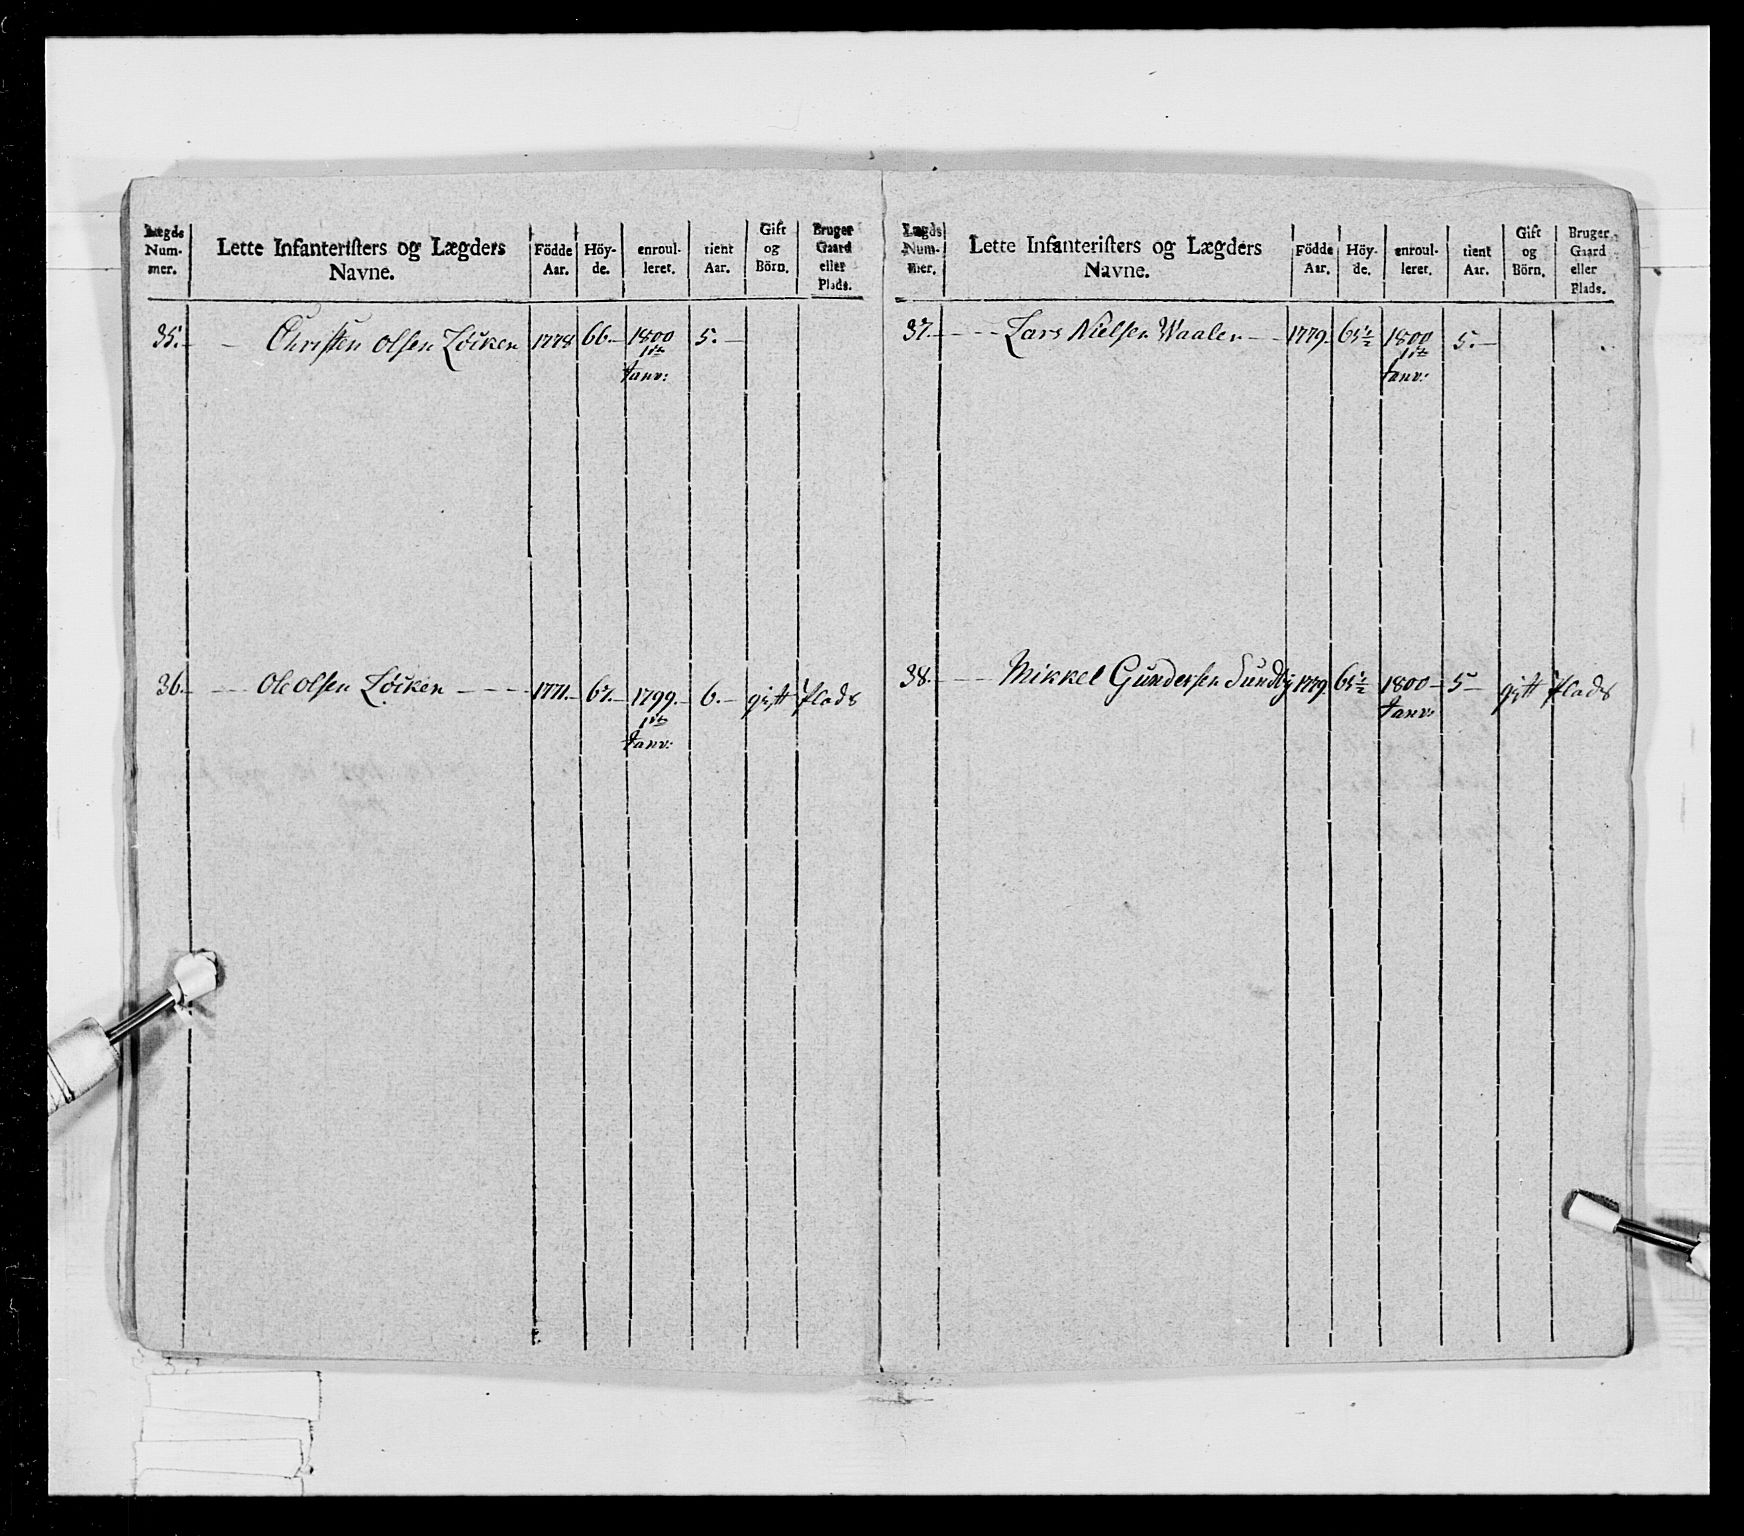 Lægds Num- mer. Lette Infanteristers og Lægders Navne. Födde Aar. Höy- de. enroul- leret. tient Aar. Gift og Börn. Bruger Gaard eller Plads.
35. Christen Olsen Löcken 1778 66 1800 5.
1ste
Janv:
36. Ole Olsen Löcken 1771. 67. 1799. 6. gift plads
1ste
Janv:
Lægds Num- mer. Lette Infanteristers og Lægders Navne. Födde Aar. Höy- de. enroul- leret. tient Aar. Gift og Börn. Bruger Gaard eller Plads.
37. Lars Nielsen Waaler 1779. 65½ 1800 5.
1ste
Janv:
38. Mikkel Gundersen Sundby 1779. 65½ 1800 5 gift plads
Janv: